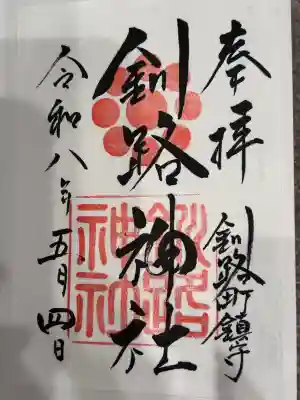 奉拝
釧路町鎮守
釧路神社
釧路
神社
令和八年五月四日